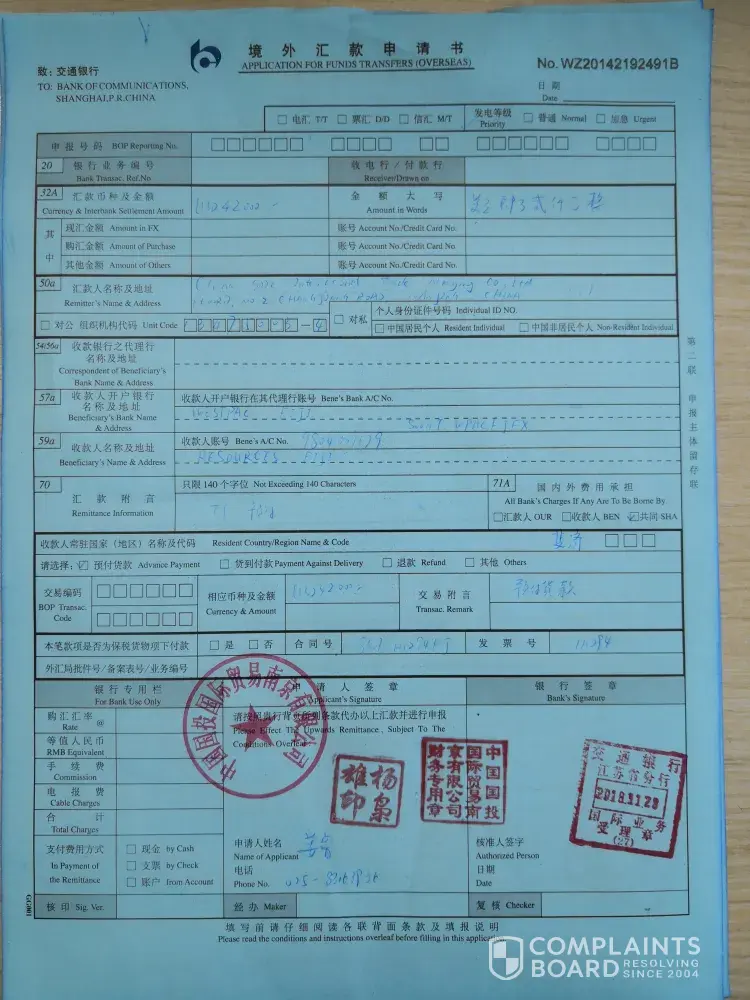 境外汇款申请书
APPLICATION FOR FUNDS TRANSFERS (OVERSEAS)
致：交通银行
TO: BANK OF COMMUNICATIONS,
SHANGHAI,P.R.CHINA
No. WZ20142192491B
日期
Date
□ 电汇 T/T □ 票汇 D/D □ 信汇 M/T 发电等级 Priority □ 普通 Normal □ 加急 Urgent
申报号码 BOP Reporting No.
20 银行业务编号 Bank Transac. Ref.No 收电行/付款行 Receiver/Drawn on
32A 汇款币种及金额 Currency & Interbank Settlement Amount 金额大写 Amount in Words
其中
现汇金额 Amount in FX 账号 Account No./Credit Card No.
购汇金额 Amount of Purchase 账号 Account No./Credit Card No.
其他金额 Amount of Others 账号 Account No./Credit Card No.
50a 汇款人名称及地址 Remitter's Name & Address
□ 对公 组织机构代码 Unit Code □ 对私 个人身份证件号码 Individual ID NO.
□ 中国居民个人 Resident Individual □ 中国非居民个人 Non-Resident Individual
54/56a 收款银行之代理行名称及地址 Correspondent of Beneficiary's Bank Name & Address
57a 收款人开户银行名称及地址 Beneficiary's Bank Name & Address 收款人开户银行在其代理行账号 Bene's Bank A/C No.
WESTPAC FIJI
59a 收款人名称及地址 Beneficiary's Name & Address 收款人账号 Bene's A/C No.
RESOURCES FIJI
70 汇款附言 Remittance Information 只限140个字位 Not Exceeding 140 Characters
71A 国内外费用承担
All Bank's Charges If Any Are To Be Borne By
□汇款人 OUR □收款人 BEN ☑共同 SHA
收款人常驻国家（地区）名称及代码 Resident Country/Region Name & Code 斐济
请选择：☑ 预付货款 Advance Payment □ 货到付款 Payment Against Delivery □ 退款 Refund □ 其他 Others
交易编码 BOP Transac. Code 相应币种及金额 Currency & Amount 交易附言 Transac. Remark 预付货款
本笔款项是否为保税货物项下付款 □ 是 □ 否 合同号 发票号
外汇局批件号/备案表号/业务编号
银行专用栏 For Bank Use Only 申请人签章 Applicant's Signature 银行签章 Bank's Signature
购汇汇率 @ Rate
等值人民币 RMB Equivalent
手续费 Commission
电报费 Cable Charges
合计 Total Charges
请按照贵行背页所列条款代办以上汇款并进行申报
Please Effect The Upwards Remittance, Subject To The
Conditions Overleaf
中国国投国际贸易南京有限公司
杨枭雄印
中国国投国际贸易南京有限公司财务专用章
交通银行
江苏省分行
2018.11.29
国际业务
受理章
(27)
支付费用方式 In Payment of the Remittance
□ 现金 by Cash
□ 支票 by Check
□ 账户 from Account
申请人姓名
Name of Applicant
电话
Phone No.
核准人签字
Authorized Person
日期
Date
核印 Sig. Ver. 经办 Maker 复核 Checker
填写前请仔细阅读各联背面条款及填报说明
Please read the conditions and instructions overleaf before filling in this application
第二联 申报主体留存联
COMPLAINTS
BOARD
RESOLVING
SINCE 2004